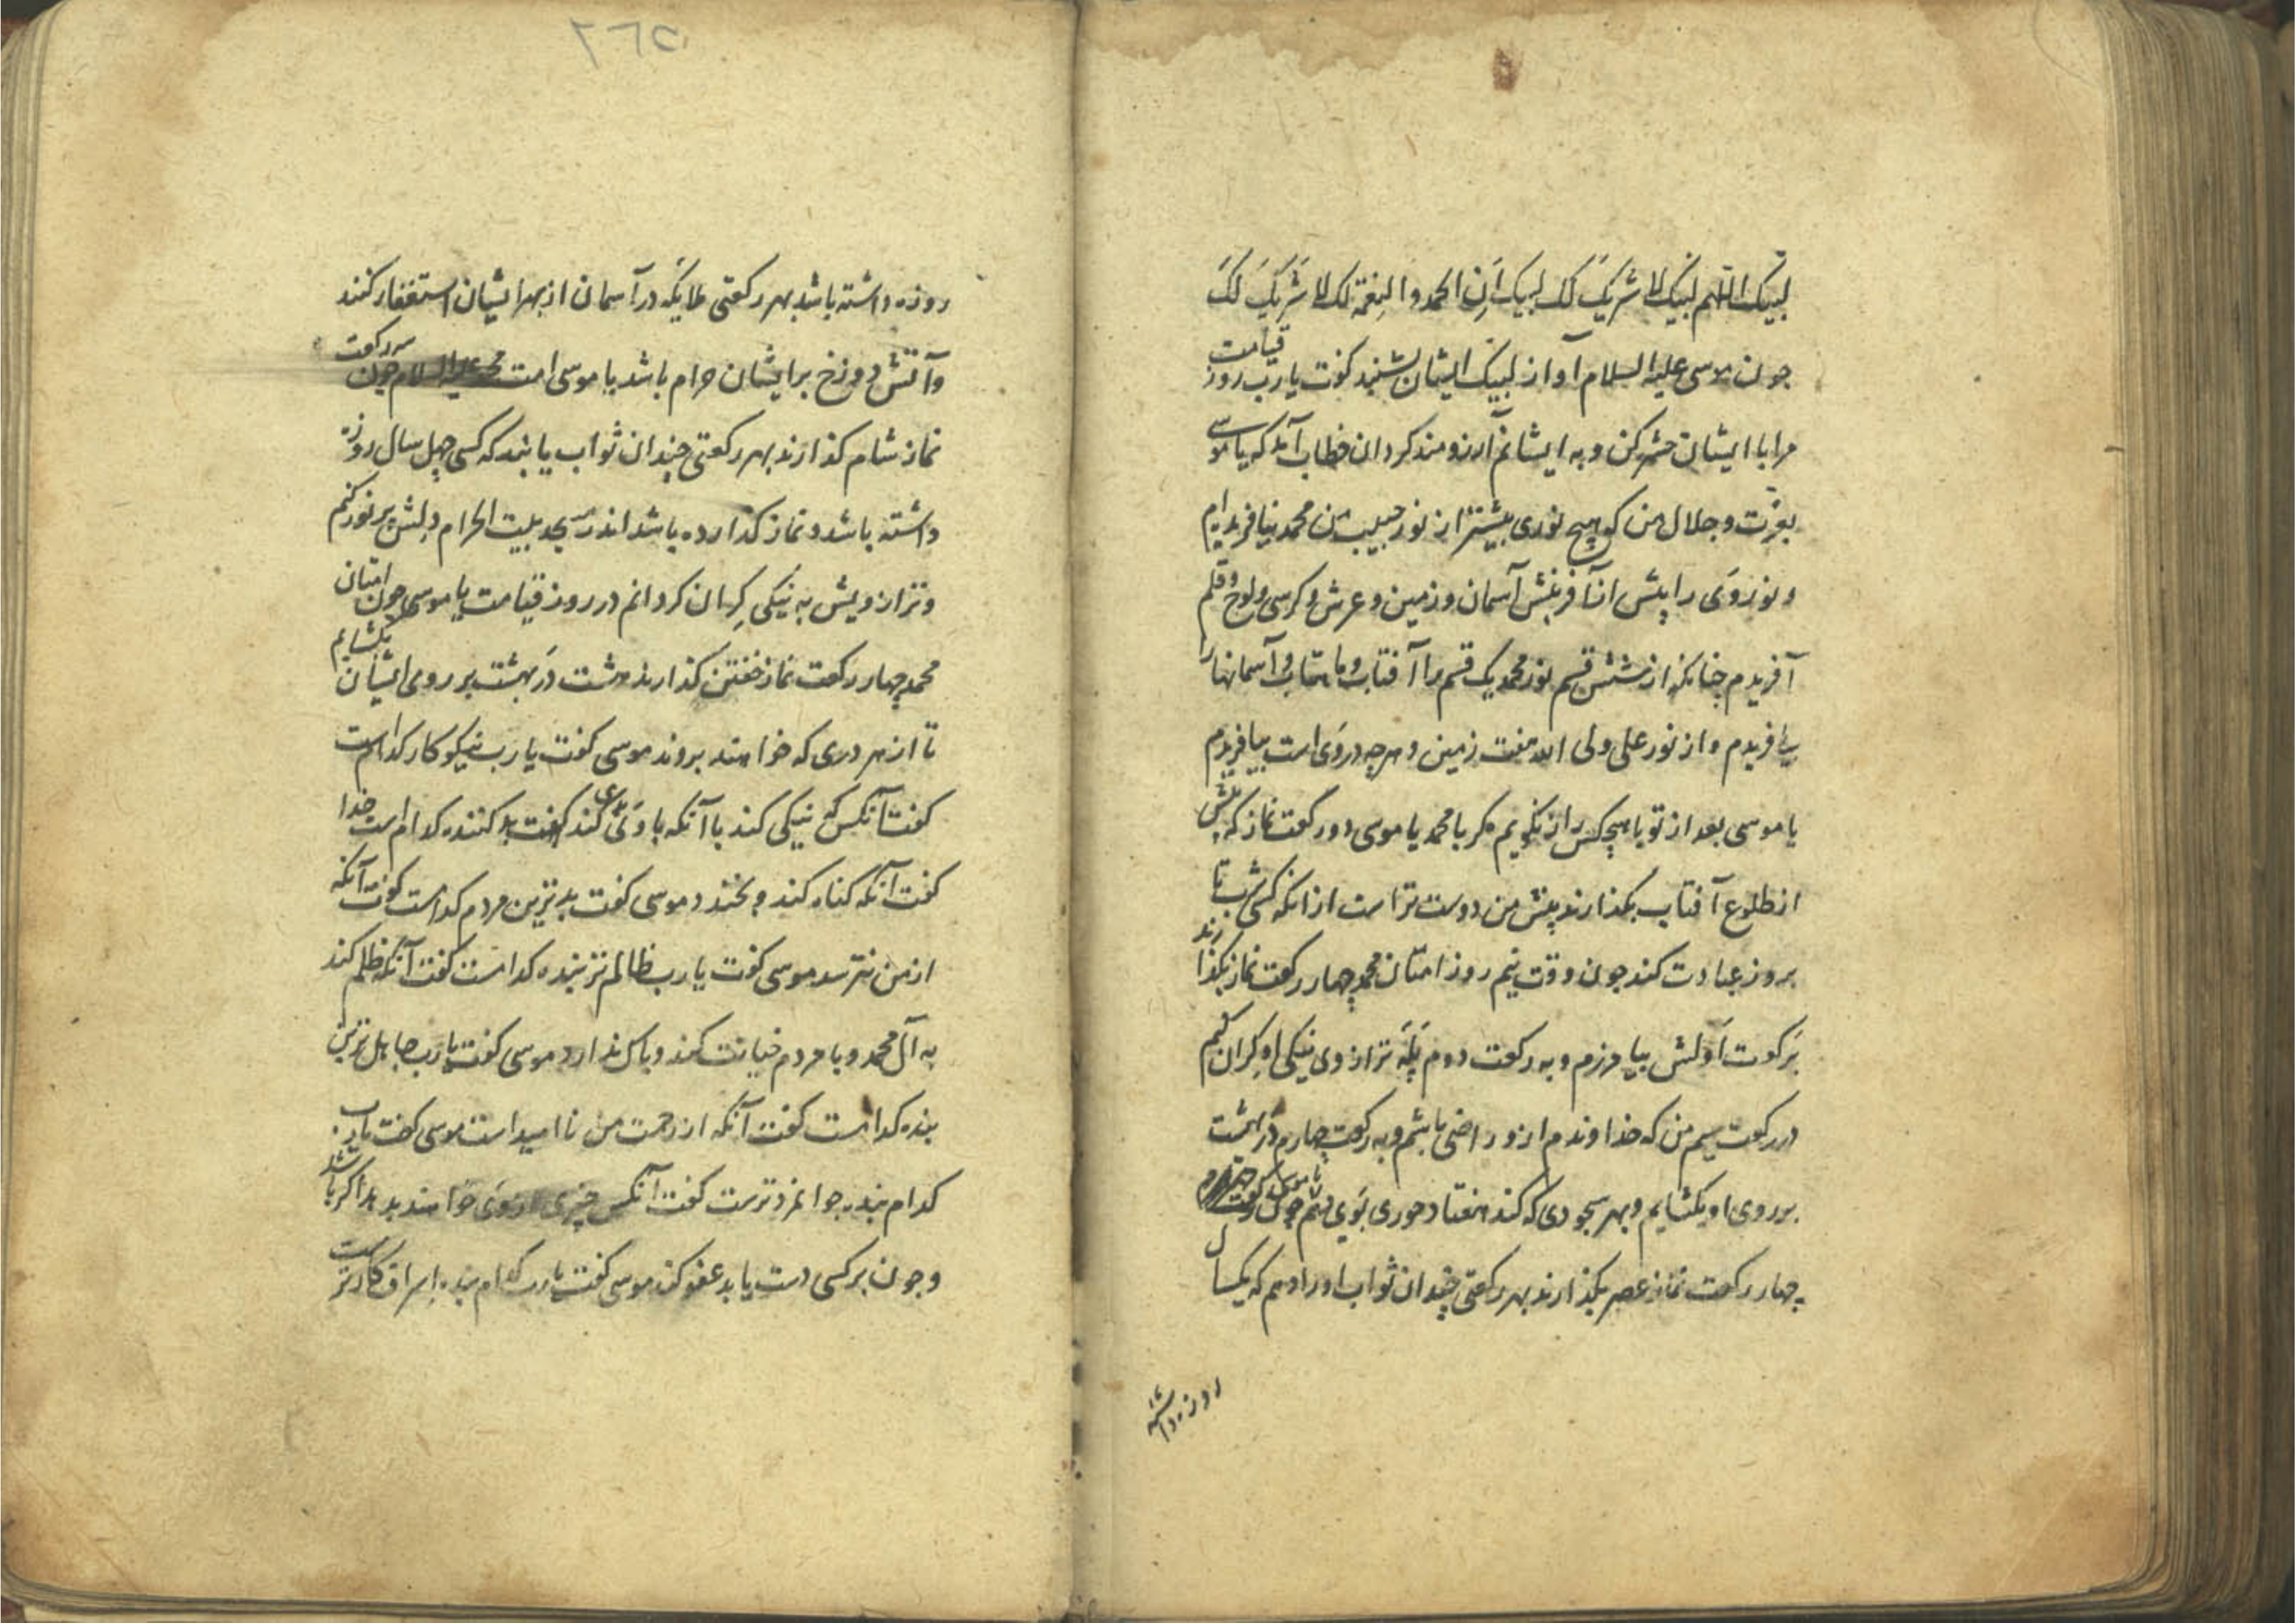 لبیک اللهم لبیک لا شریک لک لبیک ان الحمد والنعمة لک لا شریک لک
جون موسی علیه السلام آواز لبیک ایشان بشنید کفت یا رب روز قیامت
مرا با ایشان حشر کن و به ایشانم آرزومند کردان خطاب آمد که یا موسی
بعزت و جلال من کو هیچ نوری بیشتر از نور حبیب من محمد نیافریدم
و نور وی را پیش از آفرینش آسمان و زمین و عرش و کرسی و لوح و قلم
آفریدم چنانکه از شش قسم نور محمد یک قسم را آفتاب و ماهتاب و آسمانها را
بیافریدم و از نور علی ولی الله هفت زمین و هرجه در وی است بیافریدم
یا موسی بعد از تو با هیچکس راز نکویم مکر با محمد یا موسی دو رکعت نماز که پیش
از طلوع آفتاب بکذارند پیش من دوست تر است از انکه کسی شب تا
بروز عبادت کند جون وقت نیم روز امتان محمد چهار رکعت نماز بکذارند
برکعت اولش بیامرزم و به رکعت دوم پله ترازوی نیکی او کران کنم
در رکعت سیم من که خداوندم ازو راضی باشم و به رکعت چهارم در بهشت
بر روی او بکشایم و بهر سجودی که کند هفتاد حوری بوی دهم یا موسی جون
چهار رکعت نماز عصر بکذارند بهر رکعتی چندان ثواب او را دهم که یکسال
روزه داشته
۲۶۵
روزه داشته باشد بهر رکعتی ملایکه در آسمان از بهر ایشان استغفار کنند
و آتش دوزخ بر ایشان حرام باشد یا موسی امت محمد علیه السلام جون سه رکعت
نماز شام کذارند بهر رکعتی چندان ثواب یابند که کسی چهل سال روزه
داشته باشد و نماز کذارده باشد اندر مسجد بیت الحرام دلش پر نور کنم
و ترازویش به نیکی کران کردانم در روز قیامت یا موسی جون امتان
محمد چهار رکعت نماز خفتن کذارند هشت در بهشت بر روی ایشان بکشایم
تا از هر دری که خواهند بروند موسی کفت یا رب نیکوکار کدام است
کفت آنکس که نیکی کند با آنکه با وی بدی کند کفت بد کننده کدام است خدا
کفت آنکه کناه کند و بخندد موسی کفت بدترین مردم کدامست کفت آنکه
از من نترسد موسی کفت یا رب ظالم تر بنده کدامست کفت آنکه ظلم کند
به آل محمد و با مردم خیانت کند و باک ندارد موسی کفت یا رب جاهل ترین
بنده کدامست کفت آنکه از رحمت من نا امید است موسی کفت یا رب
کدام بنده جوانمردترست کفت آنکس چیزی از وی خواهند بدهد اکر باشد
و جون بر کسی دست یابد عفو کند موسی کفت یا رب کدام بنده اسراف کارترست